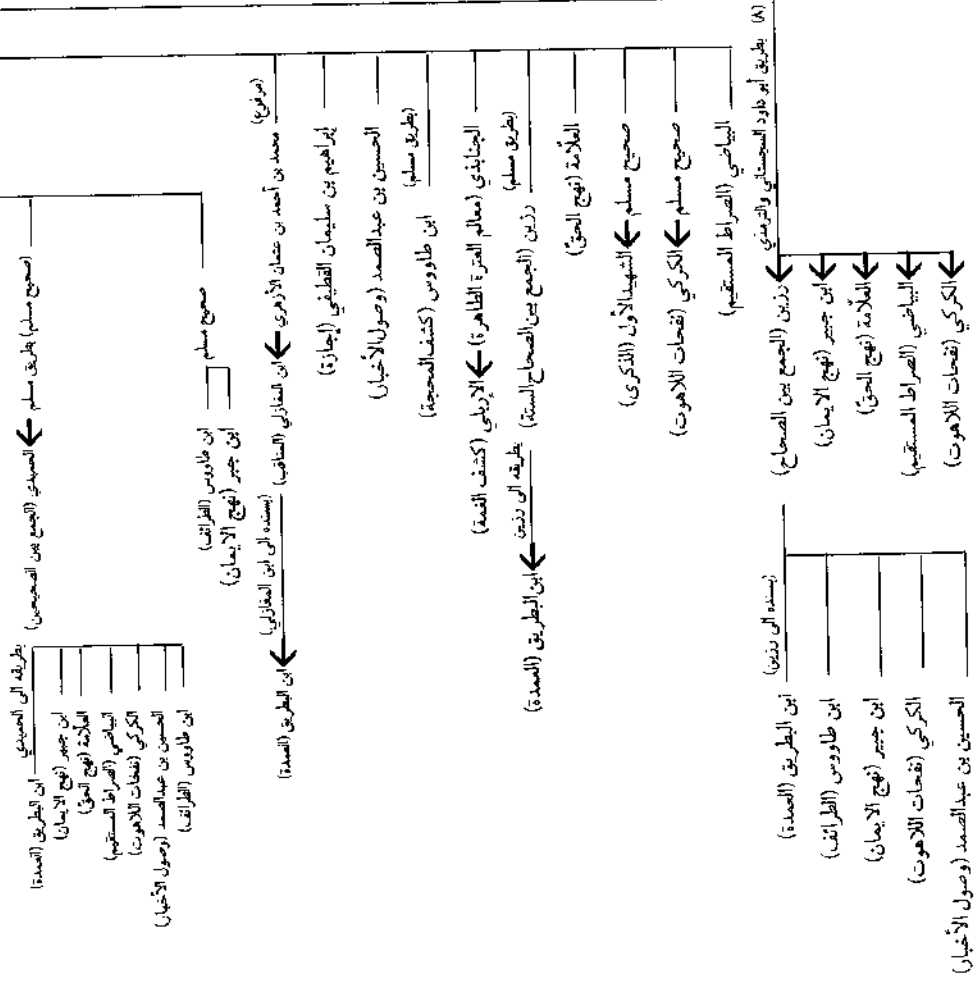 (٨) بطريق أبو داود السجستاني والترمذي
رزين (الجمع بين الصحاح)
ابن جبير (نهج الايمان)
العلّامة (نهج الحقّ)
البياضي (الصراط المستقيم)
الكركي (نفحات اللاهوت)
(بسنده الى رزين)
ابن البطريق (العمدة)
ابن طاووس (الطرائف)
ابن جبير (نهج الايمان)
الكركي (نفحات اللاهوت)
الحسين بن عبدالصمد (وصول الأخبار)
البياضي (الصراط المستقيم)
صحيح مسلم
الكركي (نفحات اللاهوت)
صحيح مسلم
الشهيدالأول (الذكرى)
العلّامة (نهج الحقّ)
(بطريق مسلم)
رزين (الجمع بين الصحاح الستة)
بطريقه الى رزين
ابن البطريق (العمدة)
الجنابذي (معالم العترة الطاهرة)
الإربلي (كشف الغمة)
(بطريق مسلم)
ابن طاووس (كشف المحجة)
الحسين بن عبدالصمد (وصول الأخبار)
إبراهيم بن سليمان القطيفي (إجازة)
(مرفوع)
محمد بن أحمد بن عثمان الأزهري
ابن المغازلي (المناقب)
(بسنده الى ابن المغازلي)
ابن البطريق (العمدة)
صحيح مسلم
ابن طاووس (الطرائف)
ابن جبير (نهج الايمان)
(صحيح مسلم) بطريق مسلم
الحميدي (الجمع بين الصحيحين)
بطريقه الى الحميدي
ابن البطريق (العمدة)
ابن جبير (نهج الايمان)
العلّامة (نهج الحقّ)
البياضي (الصراط المستقيم)
الكركي (نفحات اللاهوت)
الحسين بن عبدالصمد (وصول الأخبار)
ابن طاووس (الطرائف)